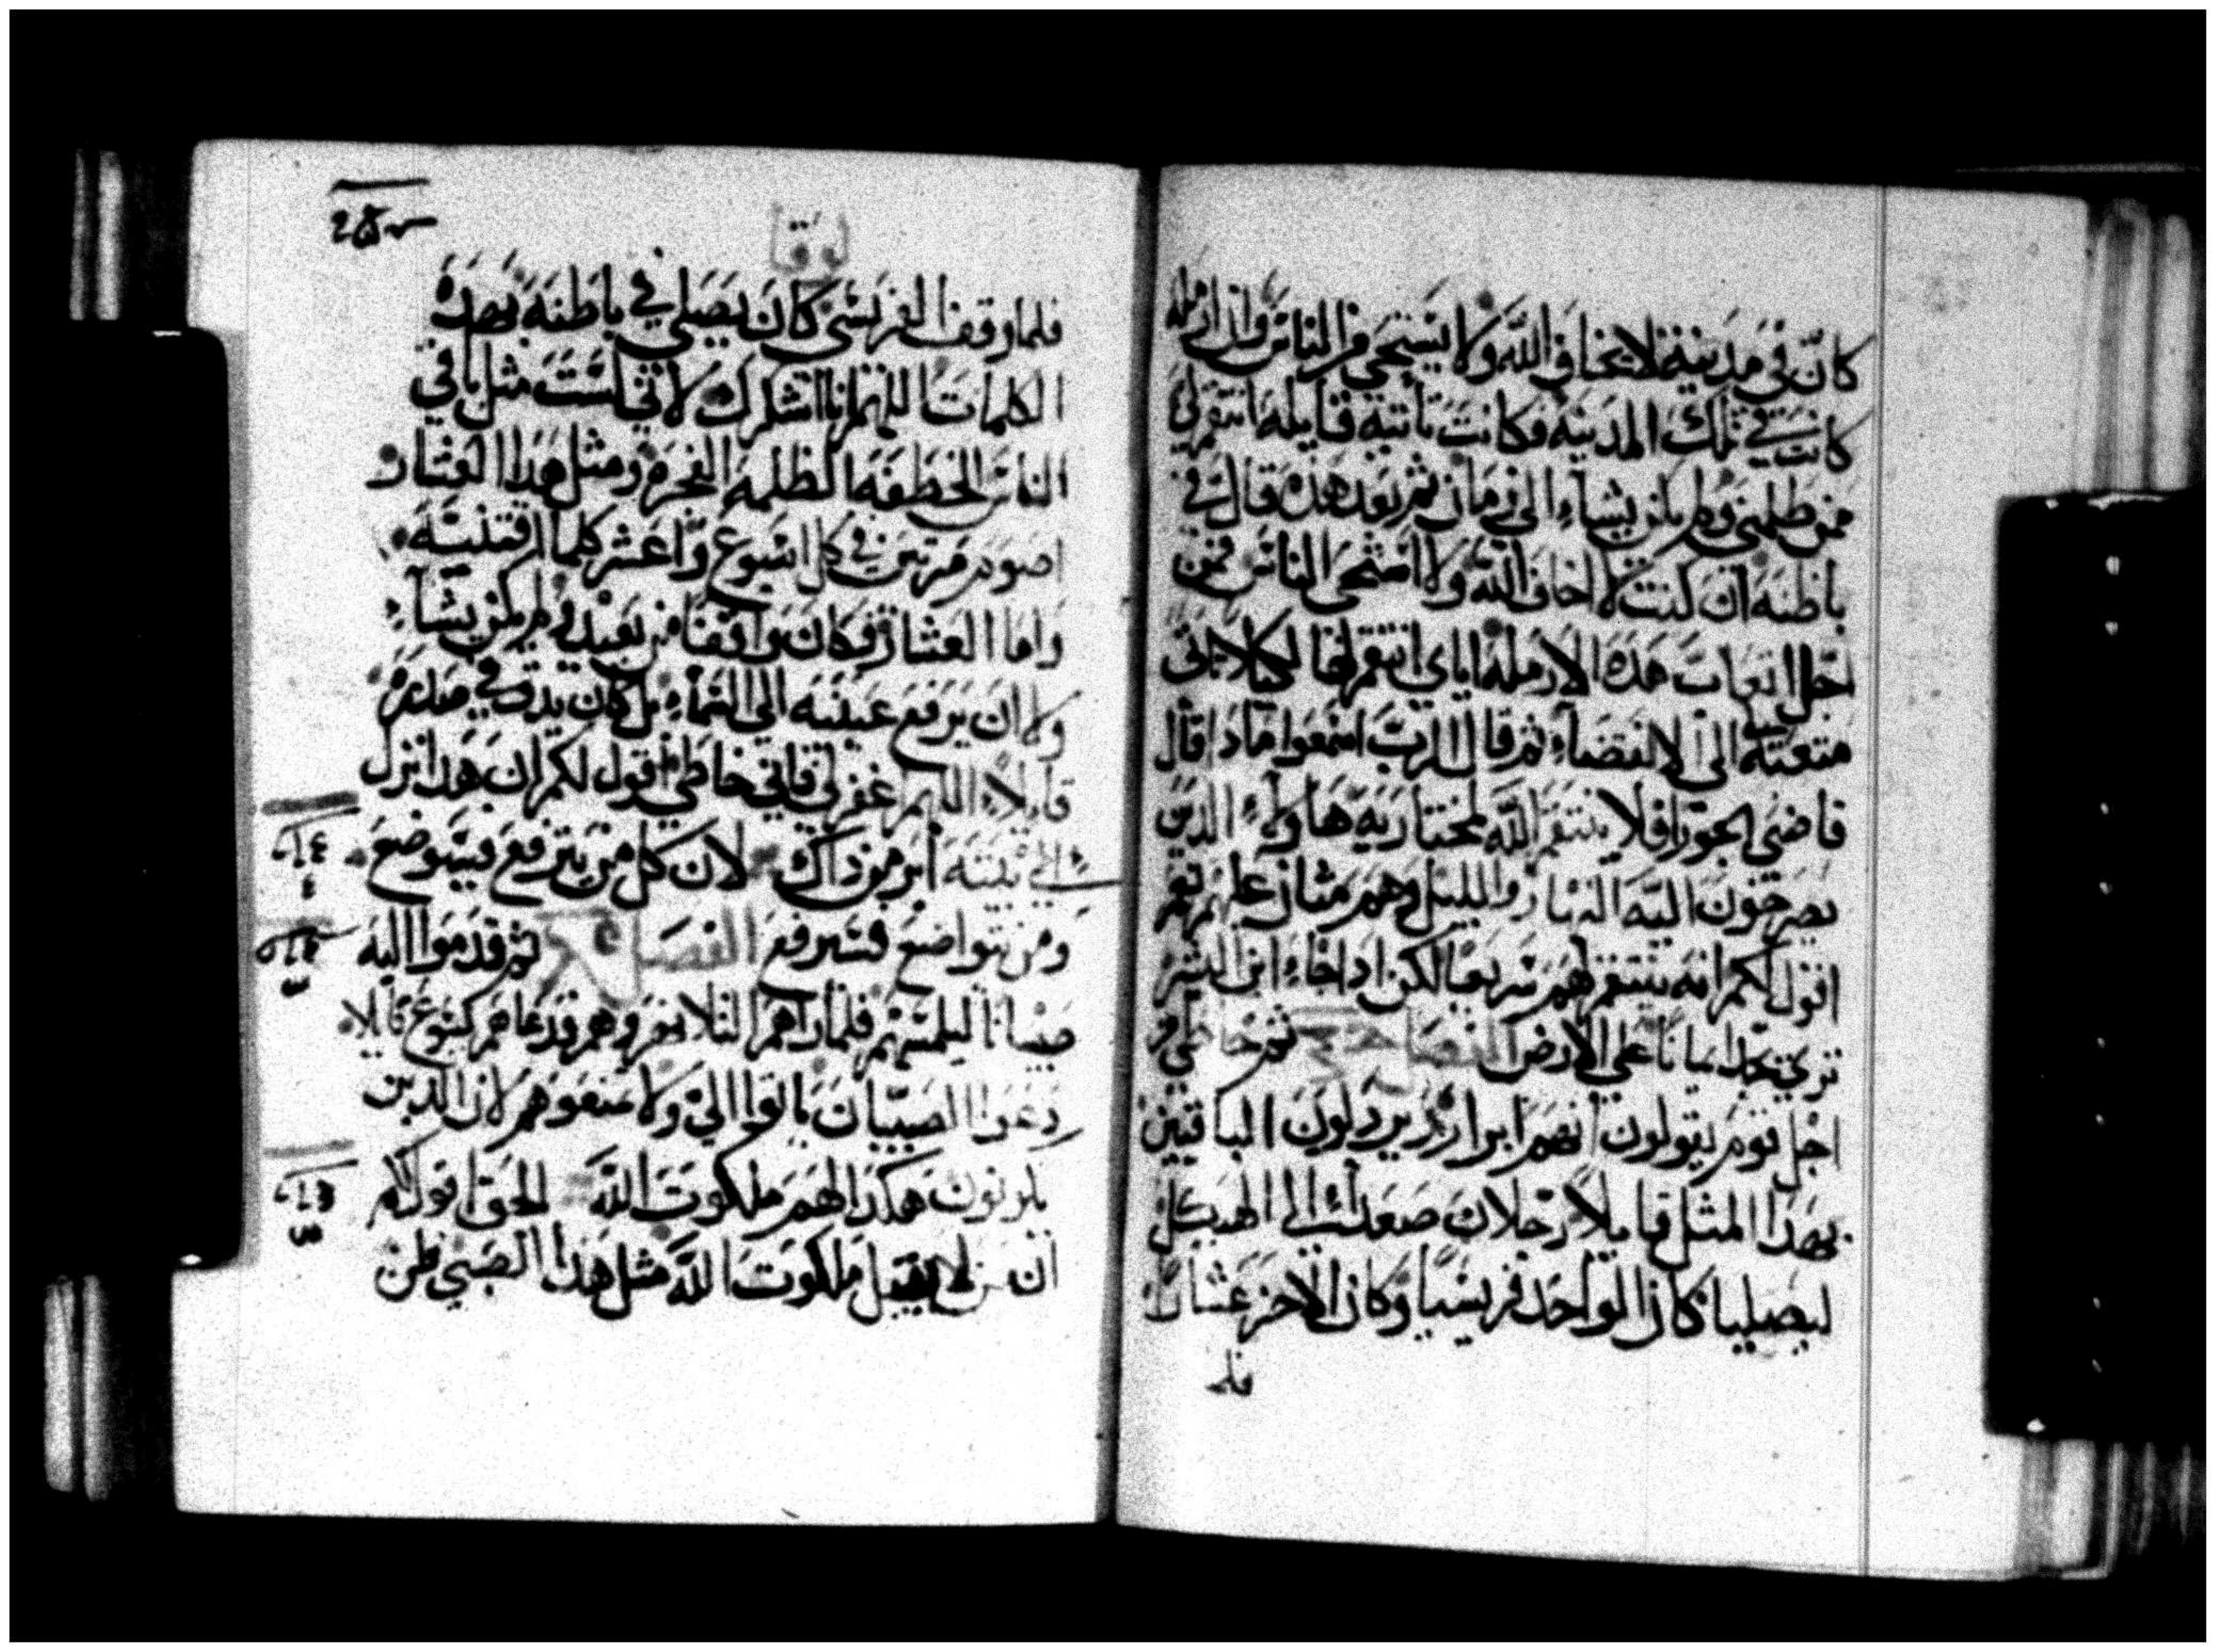 كان في مدينة لا يخاف الله ولا يستحي من الناس وان ارمله
كانت في تلك المدينه وكانت تأتيه قايله انتقم لي
ممن ظلمني ولم يكن يشاء الى زمان ثم بعد هذه قال في
باطنه ان كنت لا اخاف الله ولا استحى الناس فمن
اجل اتعاب هذه الارمله اياي انتقم لها لكيلا تاتى
متعبته الى الانقضاء ثم قال الرب اسمعوا ماذا قال
قاضي الجور افلا ينتقم الله لمختاريه هاولاء الذين
يصرخون اليه النهار والليل وهم متان عليهم نعم
اقول لكم انه ينتقم لهم سريعا لكن اذا جاء ابن البشر
ترى يجد ايمانا على الارض الفصل ثم خاطب من
اجل قوم يقولون انهم ابرار ويردلون الباقيين
بهذا المثل قايلا رجلان صعدا الى الهيكل
ليصليا كان الواحد فريسيا وكان الاخر عشارا
فلما
لوقا
فلما وقف الفريسي كان يصلي في باطنه بهده
الكلمات اللهم انا اشكرك لاني لست مثل باقي
الناس الخطفه الظلمه الفجره ومثل هدا العشار
اصوم مرتين في كل اسبوع واعشر كلما اقتنيته
واما العشار فكان واقفا من بعيد ولم يكن يشاء
ولا ان يرفع عينيه الى السماء بل كان يدق في صدره
قايلا اللهم اغفر لي فاني خاطي اقول لكم ان هدا نزل
الي بيته ابر من داك لان كل من يترفع فسيوضع
ومن يتواضع فسيرفع الفصل ثم قدموا اليه
صبيانا ليلمسهم فلما راهم التلاميد زجروهم فدعاهم يسوع قايلا
دعوا الصبيان ياتوا الي ولا تمنعوهم لان الدين
يكونون هكدا لهم ملكوت الله الحق اقول لكم
ان من لا يقبل ملكوت الله مثل هدا الصبي فلن